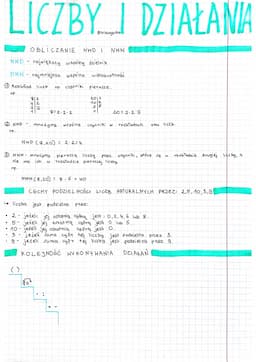 LICZBY I DZIAŁANIA
OBLICZANIE NWD I NWW
NWD - największy wspólny dzielnik
NWW - najmniejsza wspólna wielokrotność
① Rozkład liczb na czynniki pierwsze.
np.
8 = 2·2·2
20 = 2·2·5
② NWD - mnożymy wspólne czynniki w rozkładach obu liczb
np.
NWD (8,20) = 2·2 = 4
③ NWW - mnożymy pierwszą liczbę przez czynniki, które są w rozkładzie drugiej liczby, a nie ma ich w rozkładzie pierwszej liczby
np.
NWW (8,20) = 8·5 = 40
CECHY PODZIELNOŚCI LICZB NATURALNYCH PRZEZ: 2,5,10,3,9
liczba jest podzielna przez:
• 2 - jeżeli jej ostatnią cyfrą jest: 0, 2, 4, 6 lub 8.
• 5 - jeżeli jej ostatnią cyfrą jest 0 lub 5.
• 10 - jeżeli jej ostatnią cyfrą jest 0.
• 3 - jeżeli suma cyfr tej liczby jest podzielna przez 3.
• 9 - jeżeli suma cyfr tej liczby jest podzielna przez 9.
KOLEJNOŚĆ WYKONYWANIA DZIAŁAŃ
( )
· :
+ -